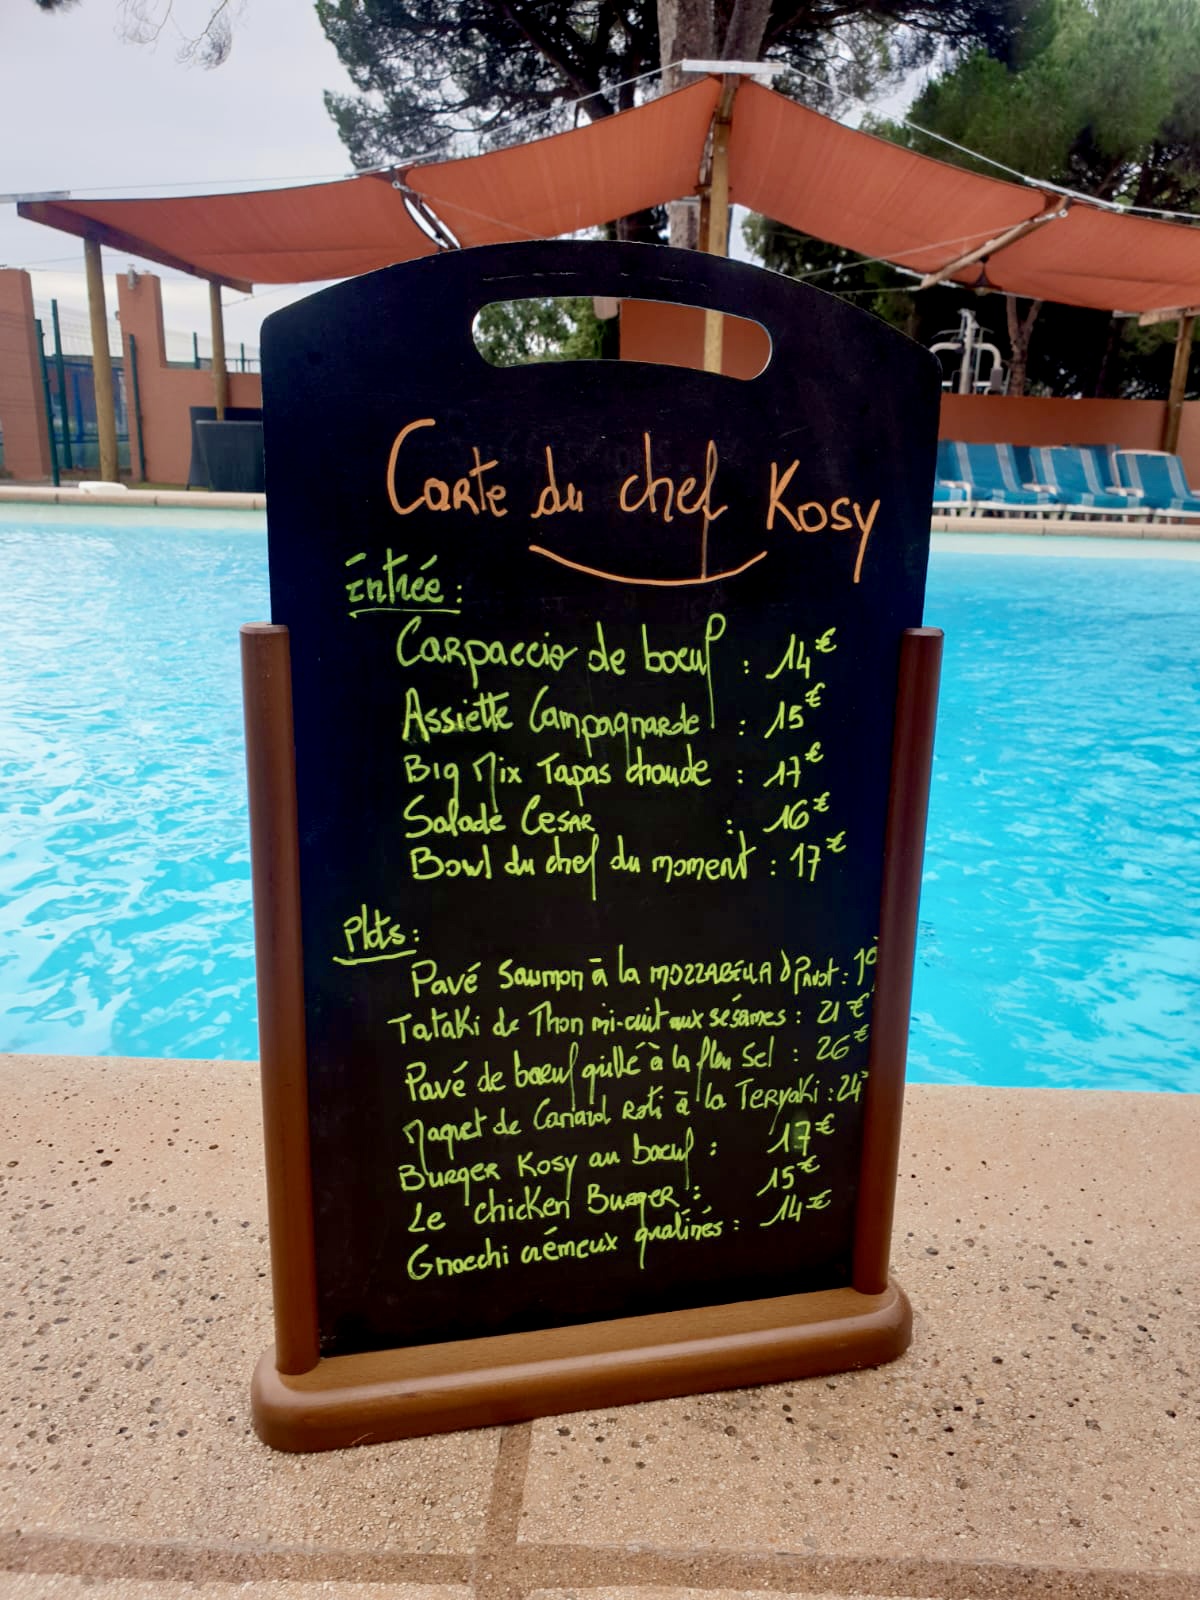 Carte du chef Kosy
Entrée :
Carpaccio de boeuf : 14€
Assiette Campagnarde : 15€
Big Mix Tapas chaude : 17€
Salade Cesar : 16€
Bowl du chef du moment : 17€
Plats :
Pavé Saumon à la mozzarella :
Tataki de Thon mi-cuit aux sésames : 21€
Pavé de boeuf grillé à la fleu Sel : 26€
Magret de Canard Roti à la Teryaki : 24
Burger Kosy au boeuf : 17€
Le chicken Burger : 15€
Gnocchi crémeux gratinés : 14€